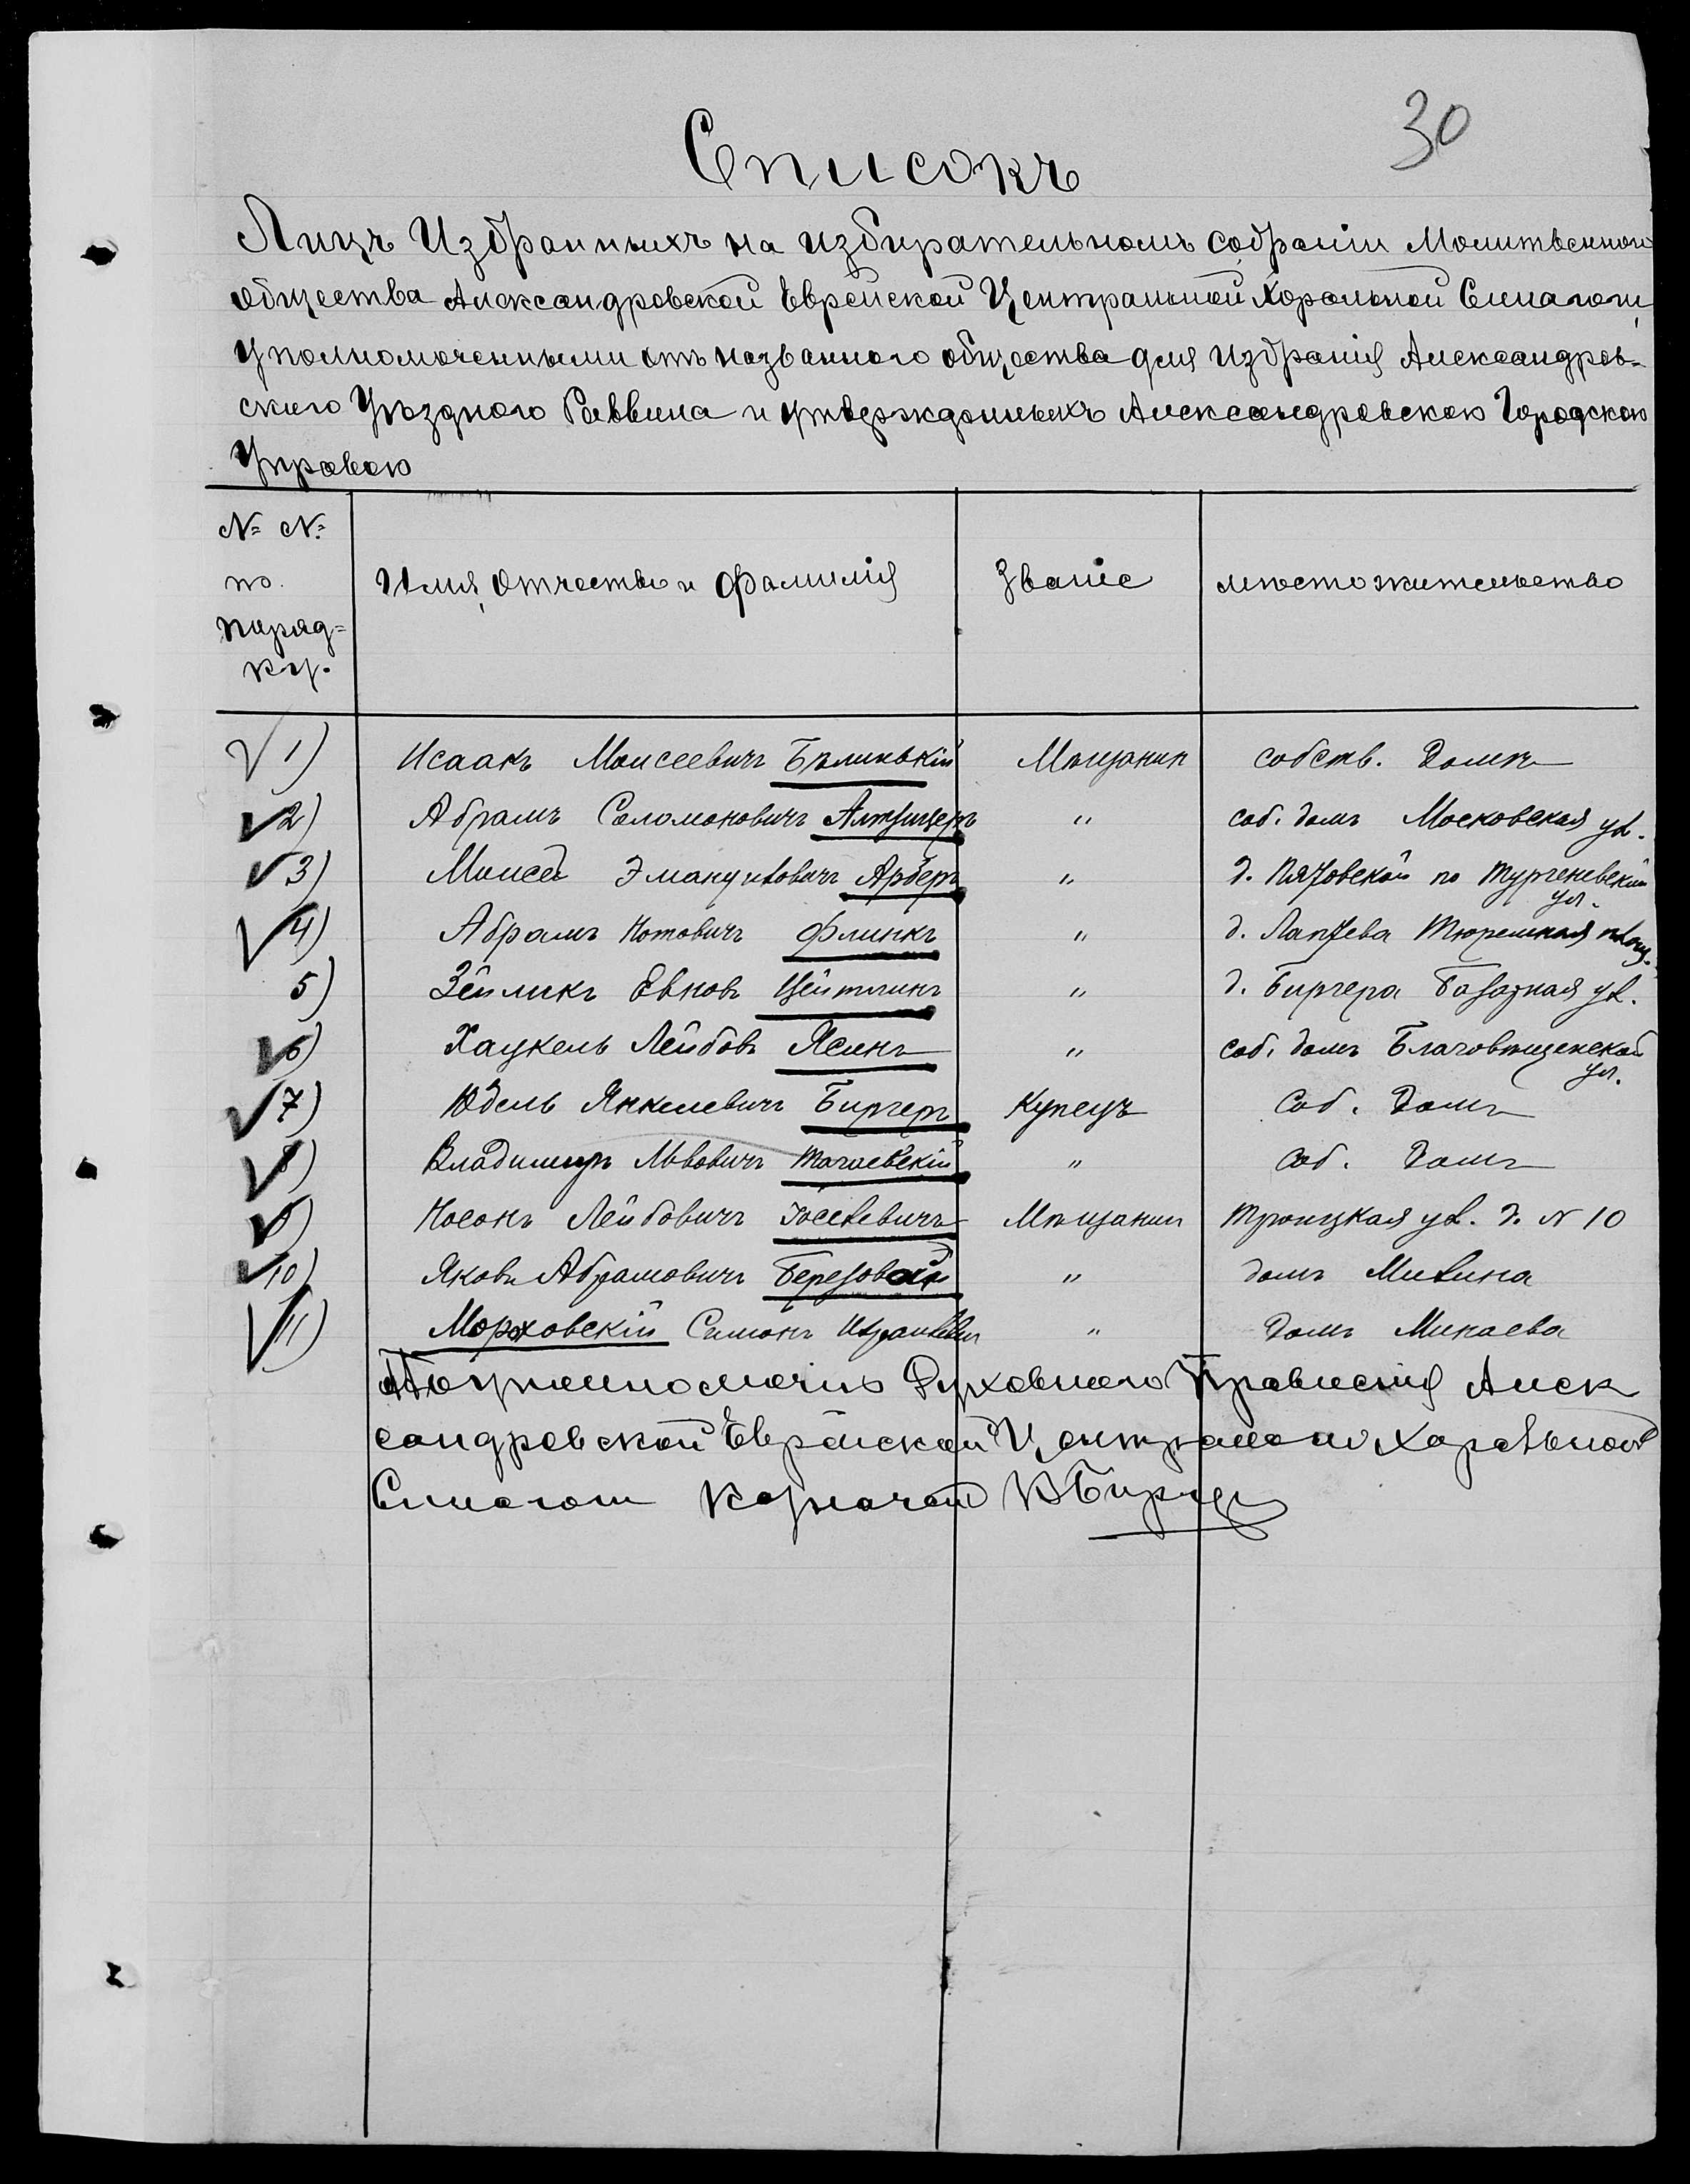 30
Списокъ
Лицъ Избранныхъ на избирательномъ собраніи Молитвеннаго
общества Александровской Еврейской Центральной Хоральной Синагоги,
уполномоченными отъ названнаго общества для избранія Александров-
скаго Уѣзднаго Раввина и утвержденныхъ Александровскою Городскою
Управою
№ №
по
поряд-
ку.
Имя, Отчество и Фамилія
Званіе
мѣсто жительство
1) Исаакъ Моисеевичъ Бѣлинькій Мѣщанин собств. Домъ
2) Абрамъ Соломоновичъ Алтшулеръ " соб. домъ Московская ул.
3) Моисей Эмануиловичъ Арберъ " д. по Тургеневской ул.
4) Абрамъ Нотовичъ Флинкъ " д. Лаптева Тюремная площ.
5) Зейликъ Евновъ Цейтлинъ " д. Биргера Базарная ул.
6) Хацкель Лейбовъ Ясинъ " соб. домъ Благовѣщенской ул.
7) Юдель Янкелевичъ Биргеръ Купецъ Соб. Домъ
8) Владимиръ Львовичъ Тагаевскій " Соб. Домъ
9) Носонъ Лейбовичъ Іоселевичъ Мѣщанин Троицкая ул. д. № 10
10) Яковъ Абрамовичъ Березовскій " домъ Милина
11) Морховскій Симонъ Израилевич " Домъ Минаева
По уполномочію Духовного Правленія Алек
сандровской Еврейской Центральной Хоральной
Синагоги Казначей Ю Биргер